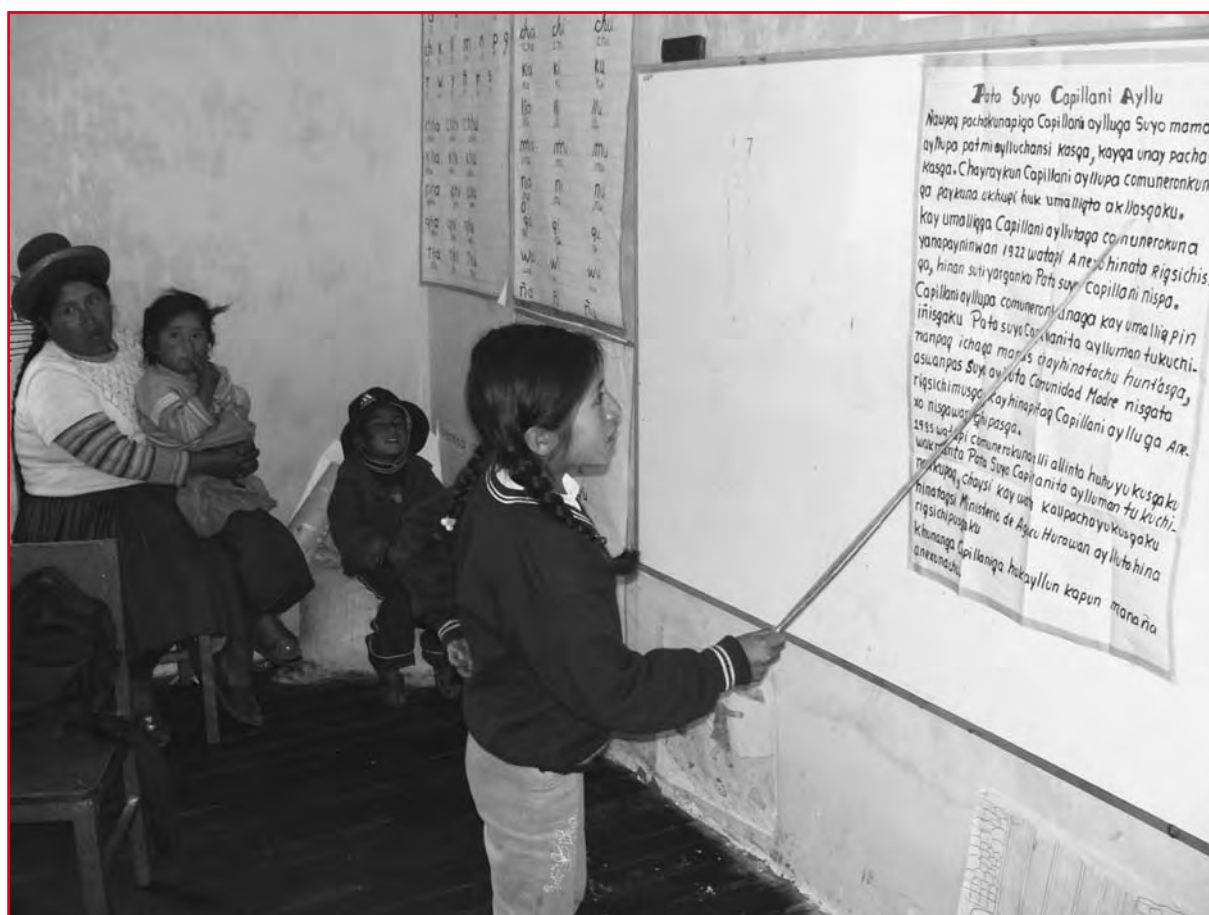 cha chi chu
ch k l ll m n p q
ka ki ku
r w y h r s
lla lli llu
ma mi mu
chha chhi chhu
na ni nu
kha khi khu
pha phi phu
qa qi qu
qha qhi qhu
wa wi wu
tha thi thu
ña ñi ñu
Pata Suyo Capillani Ayllu
Ñawpaq pachakunapiqa Capillani aylluqa Suyo mama
ayllupa patmi aylluchansi kasqa, kayqa unay pacha
kasqa. Chayraykun Capillani ayllupa comuneronkun
qa paykuna ukhupi huk umalliqta akllasqaku.
kay umalliqqa Capillani ayllutaqa comunerokuna
yanapayninwan 1922 watapi Anexo hinata Riqsichis
qa, hinan sutiyarqanku Pata suyo Capillani nispa.
Capillani ayllupa comuneronkunaqa kay umalliq pin
iñisqaku Pata suyo Capillanita aylluman tukuchi-
nanpaq ichaqa manas chayhinatachu hunt'asqa,
aswanpas Suyo aylluta Comunidad Madre nisqata
riqsichimusqa kayhinapitaq Capillani aylluqa Ane
xo nisqawan qhipasqa.
1985 watapi comunerokuna lli allinta huñuyukusqaku
wakmanta Pata Suyo Capillanita aylluman tukuchi-
nankupaq, chaysi kay wata kallpachayukusqaku
hinataqsi Ministerio de Agricu Hurawan ayllutahina
riqsichipusqaku
khunanqa Capillaniqa huk ayllun kapun manaña
anexonachu